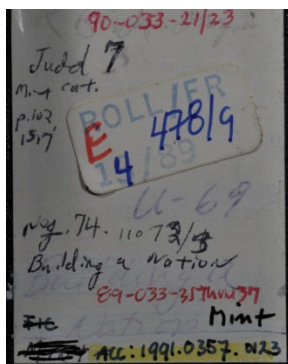 90-033-21/23
Judd 7
Mint cat.
p.102
ROLL/FR
E 4 478/9
/89
U-69
Neg. 74-11073/3
Building a Nation
89-033-35thru37
Mint
ACC: 1991.0357.0123